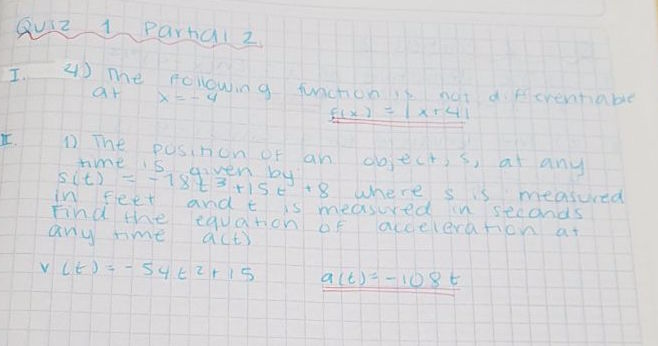 Quiz 1 Partial 2
I. 4) The following function is not differentiable
at x = -4
f(x) = |x+4|
II. 1) The position of an object, s, at any
time is given by
s(t) = -18t³ + 15t + 8 where s is measured
in feet and t is measured in seconds
Find the equation of acceleration at
any time a(t)
v(t) = -54t² + 15
a(t) = -108t